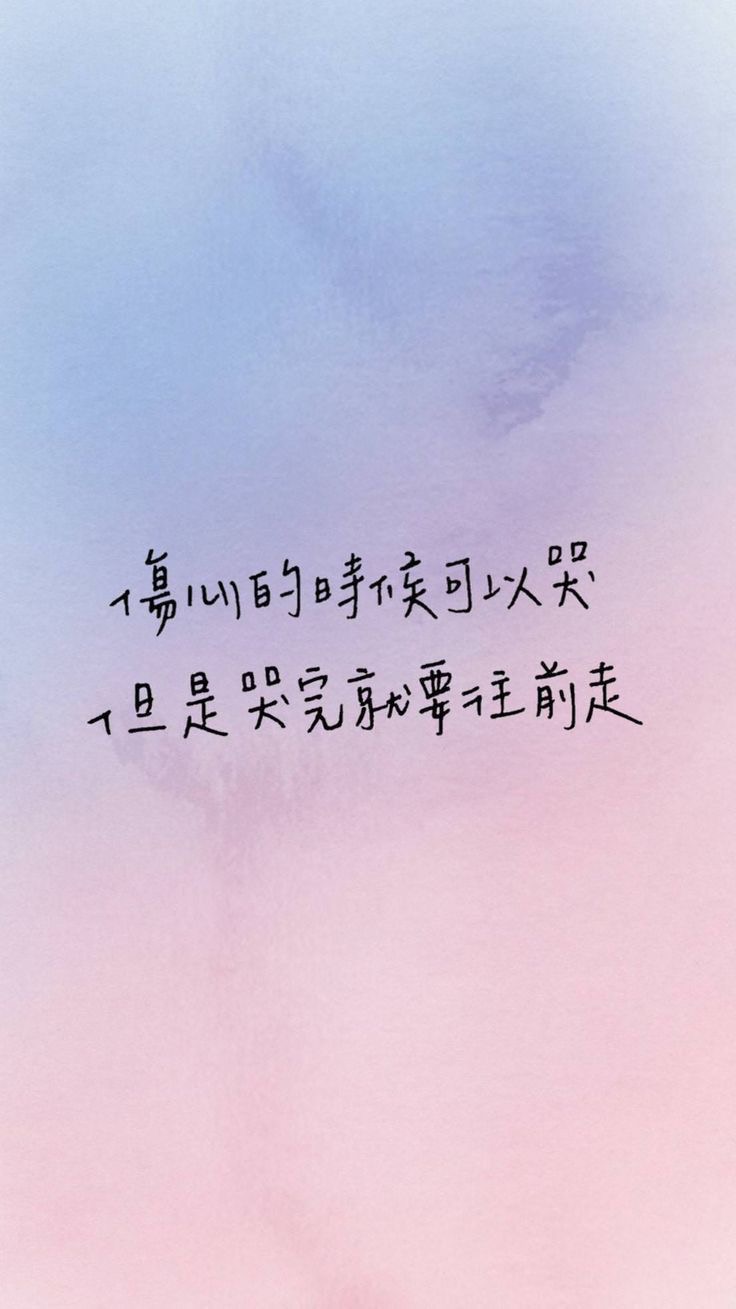 傷心的時候可以哭
但是哭完就要往前走